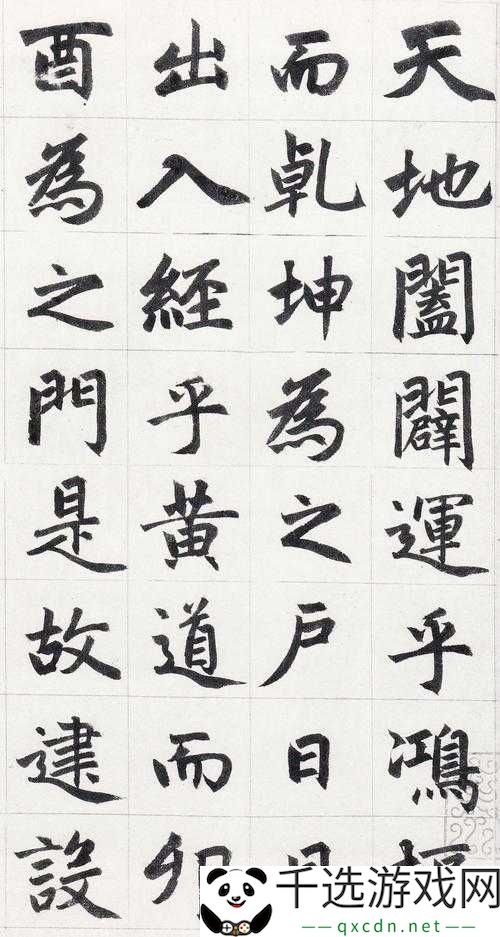 天地闔闢運乎鴻
而乾坤為之戶日
出入經乎黄道而卯
酉為之門是故建設
千选游戏网
——qxcdn.net——